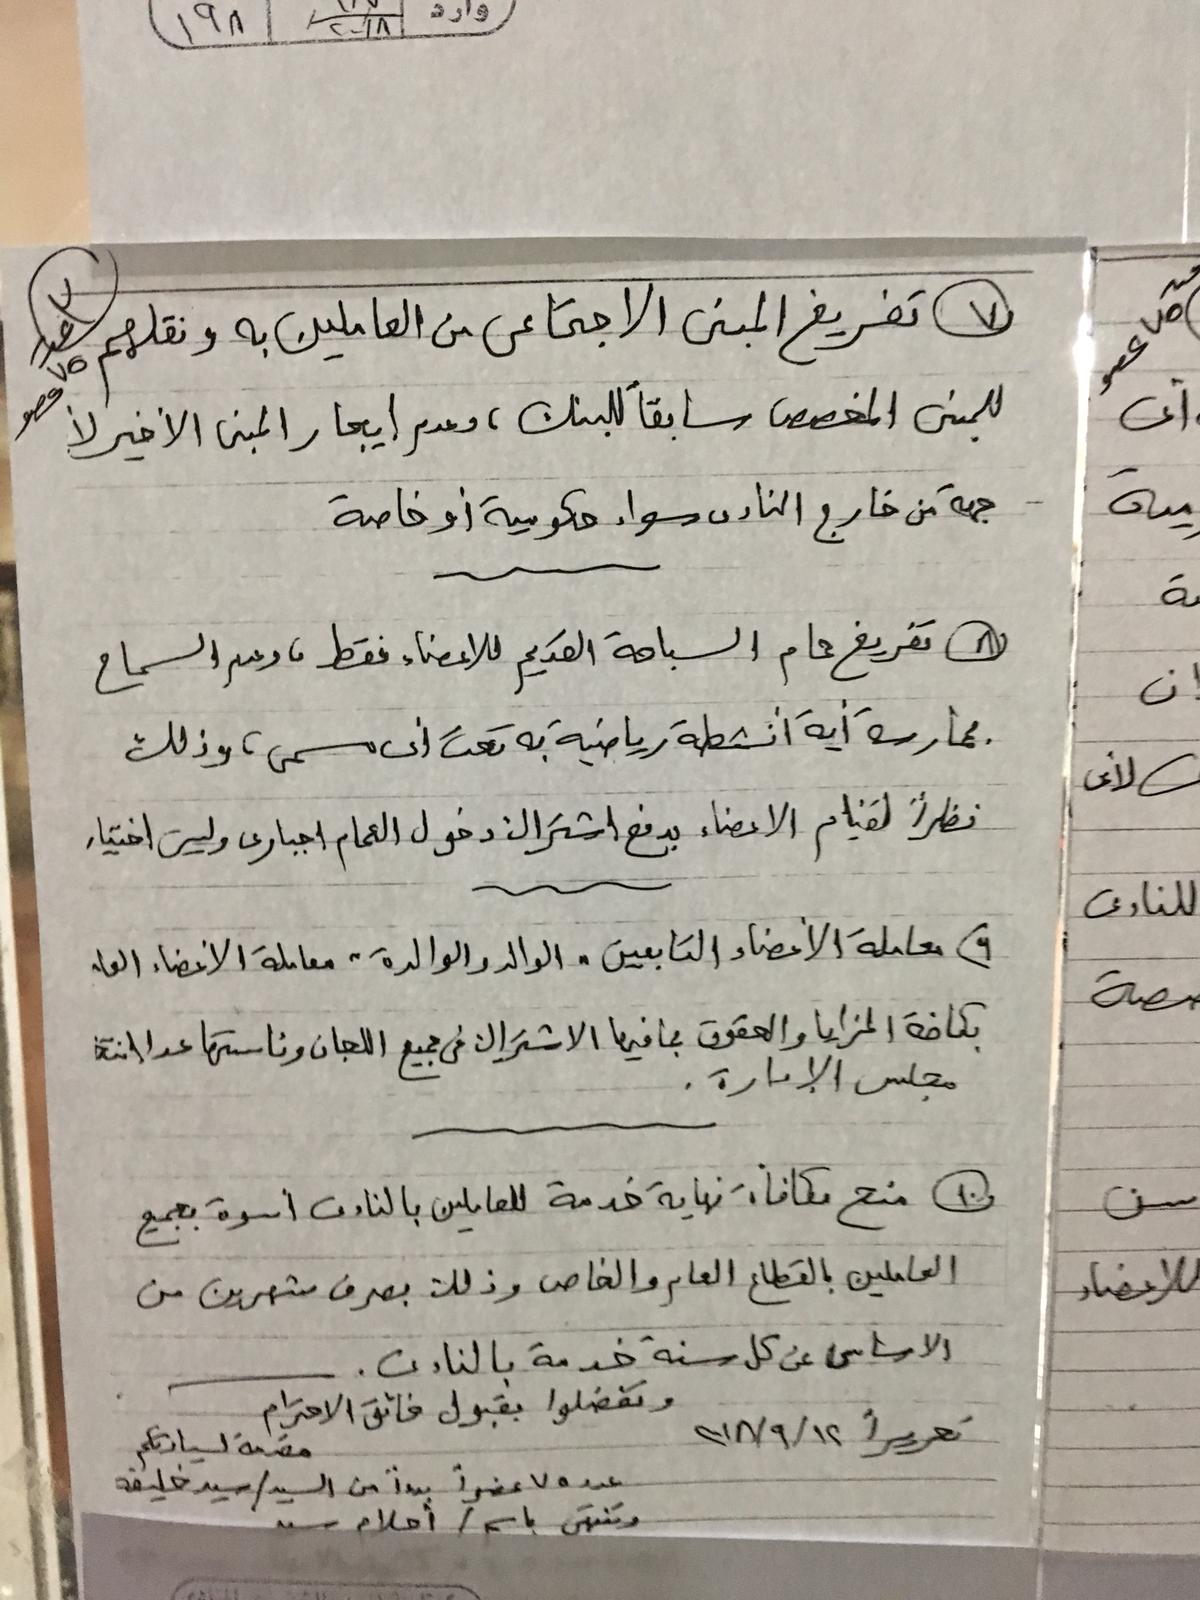 وارد
٢٠١٨
١٩٨
٣
٧٥ عضو
٧ تفريغ المبنى الاجتماعى من العاملين به ونقلهم
للمبنى المخصص سابقاً للبنك ، وعدم إيجار المبنى الأخير لأ
جهة من خارج النادى سواء حكومية أو خاصة
٨ تفريغ حمام السباحة القديم للاعضاء فقط ، وعدم السماح
بممارسة أية أنشطة رياضية به تحت أى مسمى ، وذلك
نظراً لقيام الاعضاء بدفع اشتراك دخول الحمام اجبارى وليس اختيار
٩ معاملة الأعضاء التابعين " الوالد والوالدة " معاملة الأعضاء العا
بكافة المزايا والحقوق بما فيها الاشتراك فى جميع اللجان ورئاستها عدا انتخا
مجلس الإدارة .
١٠ منح مكافأة نهاية خدمة للعاملين بالنادى أسوة بجميع
العاملين بالقطاع العام والخاص وذلك بصرف شهرين من
الاساسى عن كل سنة خدمة بالنادى .
وتفضلوا بقبول فائق الاحترام
تحريراً ٢٠١٨/٩/١٢
مقدمة لسيادتكم
عدد ٧٥ عضواً بدءاً من السيد/ سيد خليفة
وتنتهى باسم / أحلام سيد
٧٥ عضو
أى
ان
لأى
للنادى
سن
للاعضاء